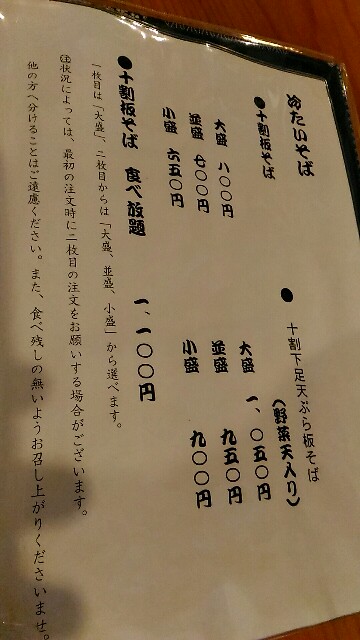 冷たいそば
●十割板そば
大盛 八〇〇円
並盛 七〇〇円
小盛 六五〇円
● 十割下足天ぷら板そば
(野菜天入り)
大盛 一、〇五〇円
並盛 九五〇円
小盛 九〇〇円
●十割板そば 食べ放題 一、一〇〇円
一枚目は「大盛」、二枚目からは「大盛、並盛、小盛」から選べます。
㊟状況によっては、最初の注文時に二枚目の注文をお願いする場合がございます。
他の方へ分けることはご遠慮ください。また、食べ残しの無いようお召し上がりくださいませ。